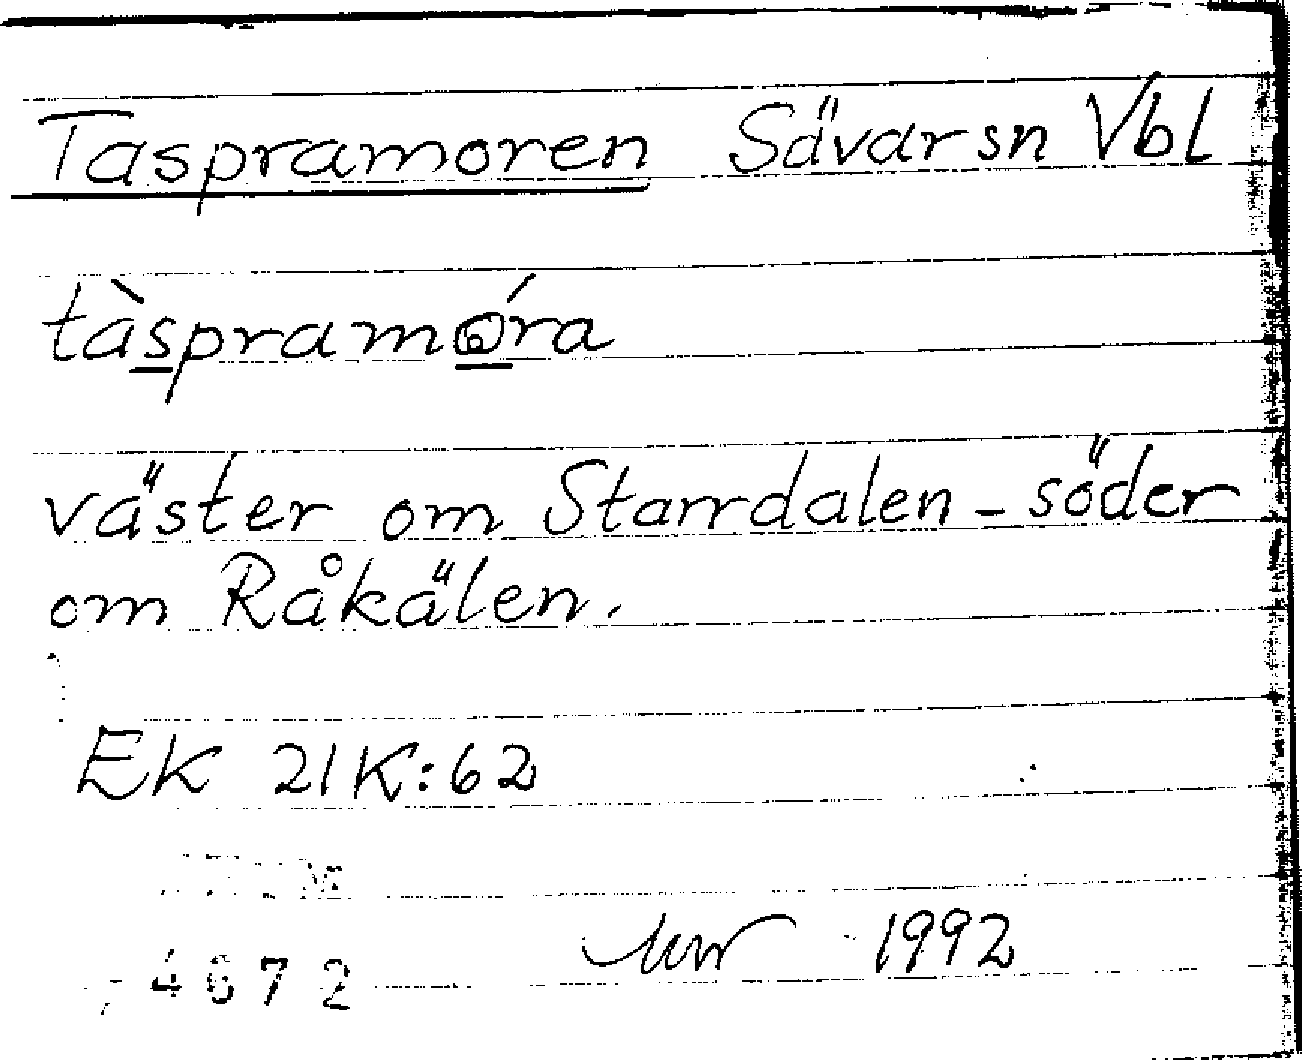 Taspramoren Sävar sn Vbl
tàspramóra
väster om Starrdalen - söder
om Råkälen.
EK 21K:62
1992
4672